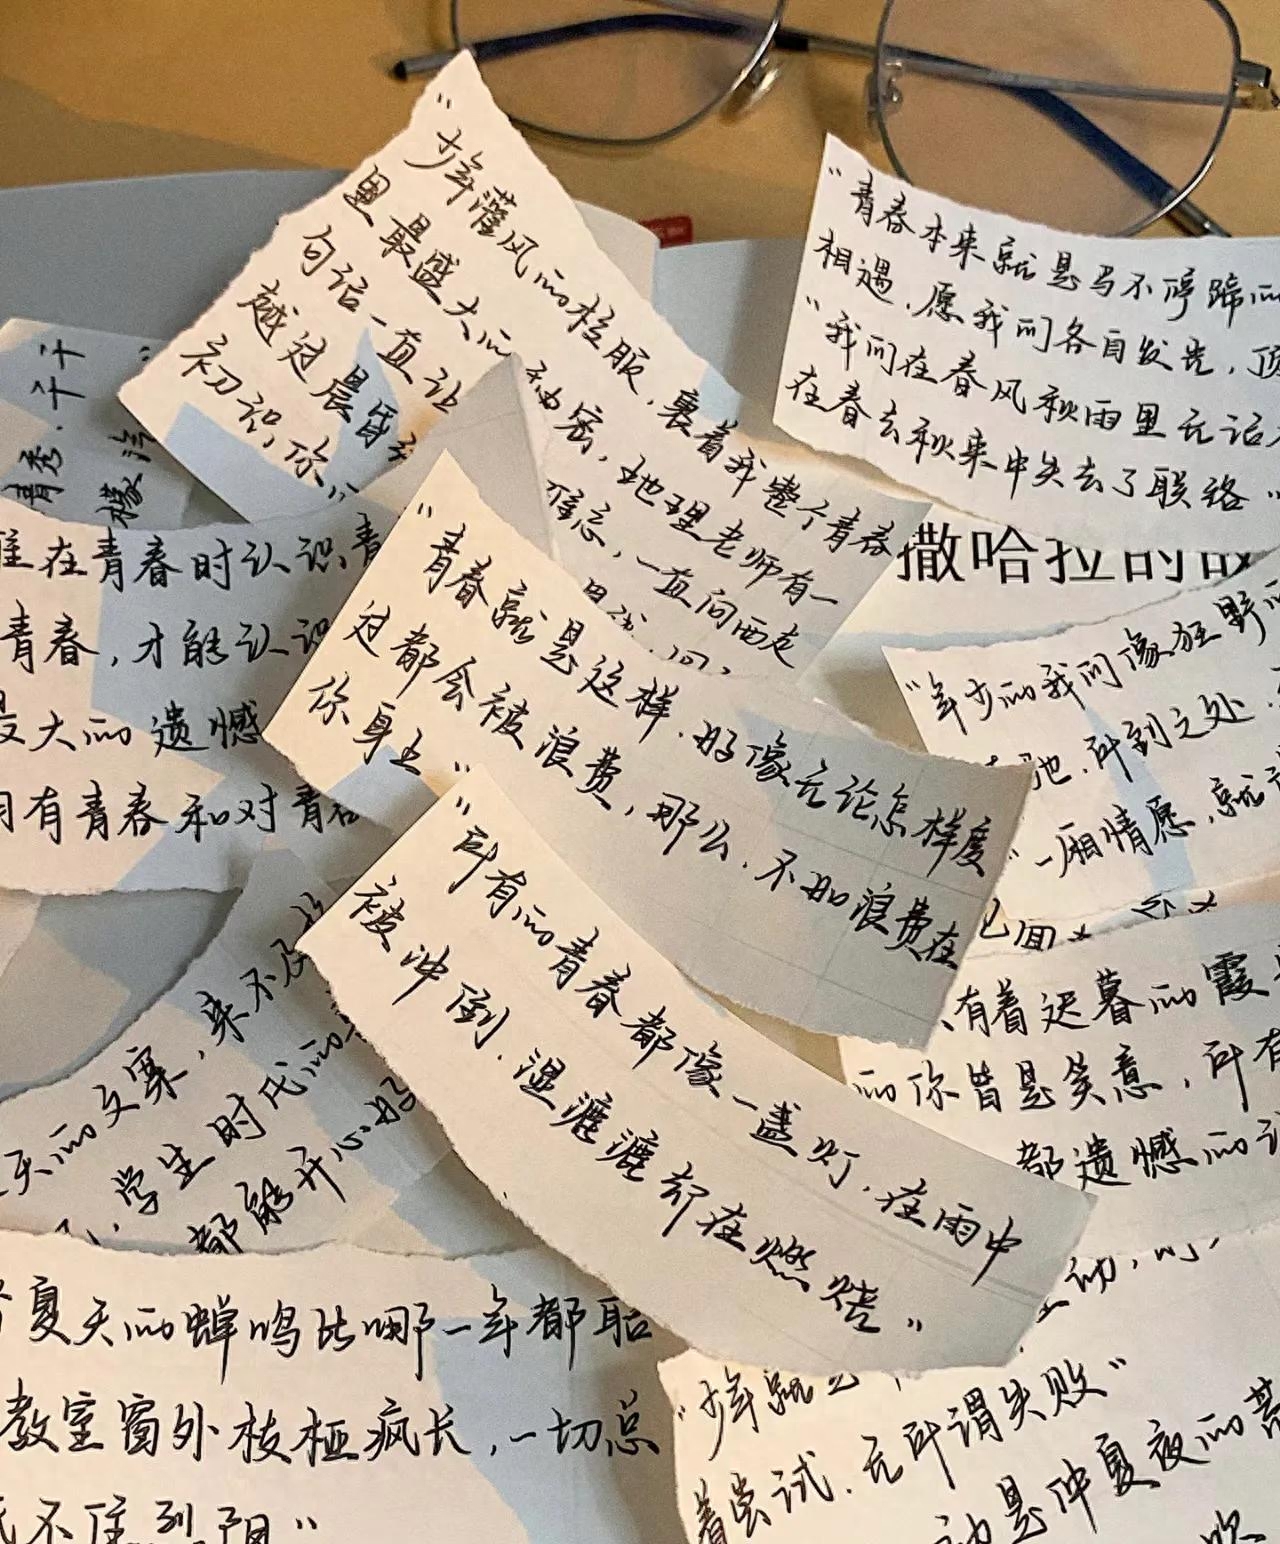 “少年灌风的校服，裹着我整个青春
里最盛大的秘密，地理老师有一
句话一直让 难忘，一直向西走
越过晨昏
初识，你
“青春本来就是马不停蹄的
相遇，愿我们各自发光，顶
“我们在春风秋雨里无话
在春去秋来中失去了联络”
撒哈拉的故
青秀，干干
在青春时认识青
青春，才能认识
最大的遗憾
拥有青春和对青春
“青春就是这样，好像无论怎样度
过都会被浪费，那么，不如浪费在
你身上”
“年少的我们像狂野的
驰，所到之处，
“一厢情愿，就
“所有的青春都像一盏灯，在雨中
被冲倒，湿漉漉却在燃烧”
有着迟暮的霞
的你皆是笑意，所有
都遗憾的
天的文案，来不及
学生时代的
都能开心好
夏天的蝉鸣比哪一年都聒
教室窗外枝桠疯长，一切总
不住烈阳”
“少年就是
着尝试，无所谓失败”
动是仲夏夜的
吹